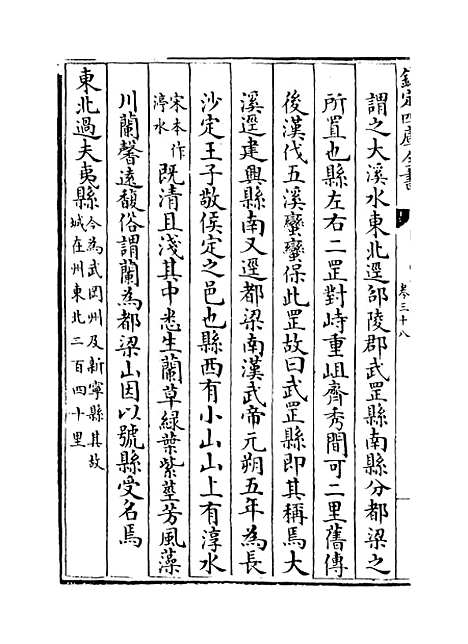 欽定四庫全書
卷三十八
謂之大溪水東北逕邵陵郡武罡縣南縣分都梁之
所置也縣左右二罡對峙重岨齊秀間可二里舊傳
後漢伐五溪蠻蠻保此罡故曰武罡縣即其稱焉大
溪逕建興縣南又逕都梁南漢武帝元朔五年為長
沙定王子敬侯定之邑也縣西有小山山上有淳水
宋本作
渟水
既清且淺其中悉生蘭草綠葉紫莖芳風藻
川蘭馨遠馥俗謂蘭為都梁山因以號縣受名焉
東北過夫夷縣
今為武岡州及新寧縣其故
城在州東北二百四十里